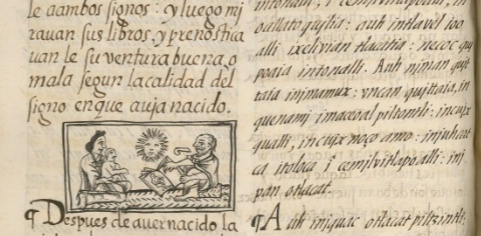 le aambos signos: y luego mj
rauan sus libros, y prenostica
uan le su ventura buena, o
mala segun la calidad del
signo en que auja nacido.
¶ Despues de auer nacido la
intonalli, j cemjlhvitlapoalli, in
oallato quijtia: auh intlavel ioo
alli ixelivian tlacatia: necoc qui
poaia intonalli. Auh njman quit
taia injmamux: vncan quittaia, in
quenamj imacoal piltontli: incujx
qualli, incujx noço amo: injuhcat
ca itoloca, j cemjlvitlapoalli: inj
pan otlacat.
¶ Auh iniquac otlacat piltzintli: